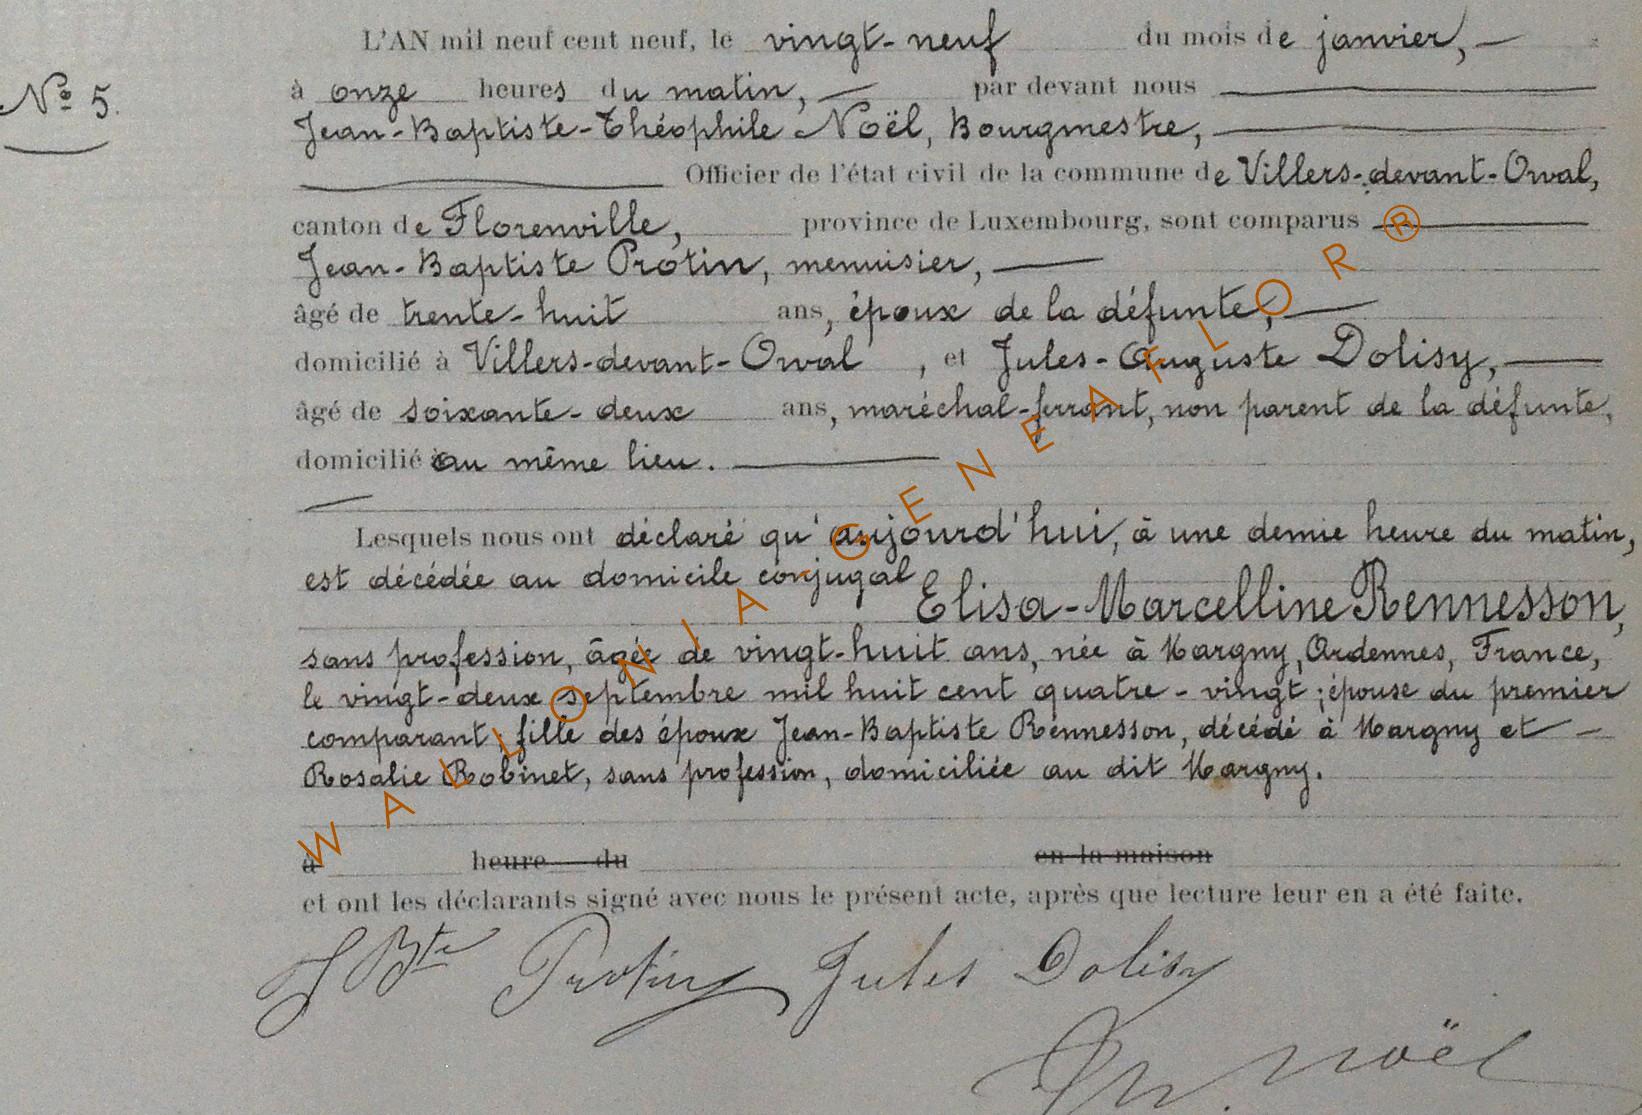 N° 5.
L'AN mil neuf cent neuf, le vingt-neuf du mois de janvier,
à onze heures du matin, par devant nous
Jean-Baptiste-Théophile Noël, Bourgmestre,
Officier de l'état civil de la commune de Villers-devant-Orval,
canton de Florenville, province de Luxembourg, sont comparus
Jean-Baptiste Protin, menuisier,
âgé de trente-huit ans, époux de la défunte,
domicilié à Villers-devant-Orval, et Jules-Auguste Dolisy,
âgé de soixante-deux ans, maréchal-ferrant, non parent de la défunte,
domicilié au même lieu.
Lesquels nous ont déclaré qu'aujourd'hui, à une demie heure du matin,
est décédée au domicile conjugal
Elisa-Marcelline Rennesson,
sans profession, âgée de vingt-huit ans, née à Margny, Ardennes, France,
le vingt-deux septembre mil huit cent quatre-vingt; épouse du premier
comparant, fille des époux Jean-Baptiste Rennesson, décédé à Margny et
Rosalie Robinet, sans profession, domiciliée au dit Margny.
à heure du en la maison
et ont les déclarants signé avec nous le présent acte, après que lecture leur en a été faite.
J Bte Protin Jules Dolisy
Noël
WALLONIA-GENEAFLOR ®